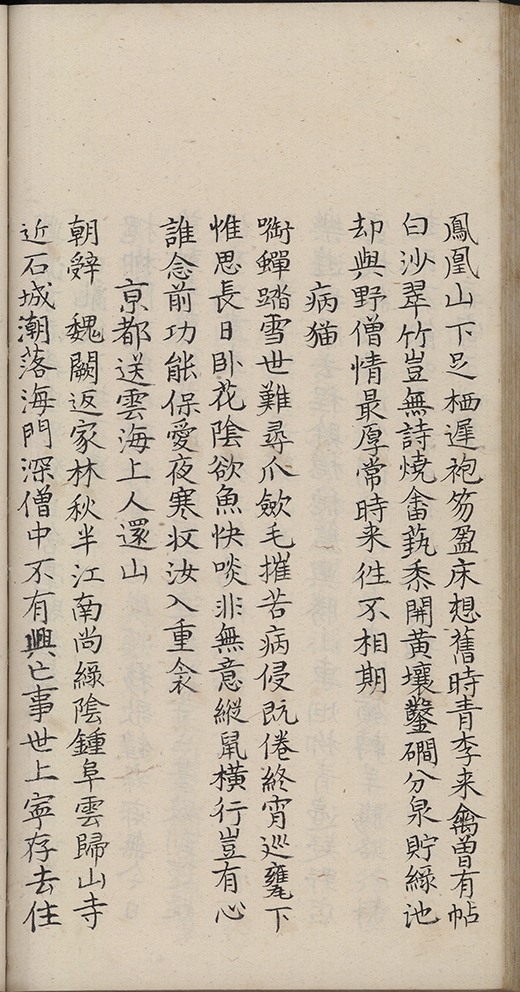 鳳凰山下足栖遲袍笏盈床想舊時青李来禽曽有帖
白沙翠竹豈無詩燒畬蓺黍開黄壤鑿磵分泉貯緑池
却與野僧情最厚常時来徃不相期
病猫
啣蟬踏雪世難尋爪歛毛摧苦病侵既倦終宵巡甕下
惟思長日卧花陰欲魚快啖非無意縱鼠橫行豈有心
誰念前功能保愛夜寒収汝入重衾
亰都送雲海上人還山
朝辤 魏闕返家林秋半江南尚緑陰鍾阜雲歸山寺
近石城潮落海門深僧中不有興亡事世上寧存去住